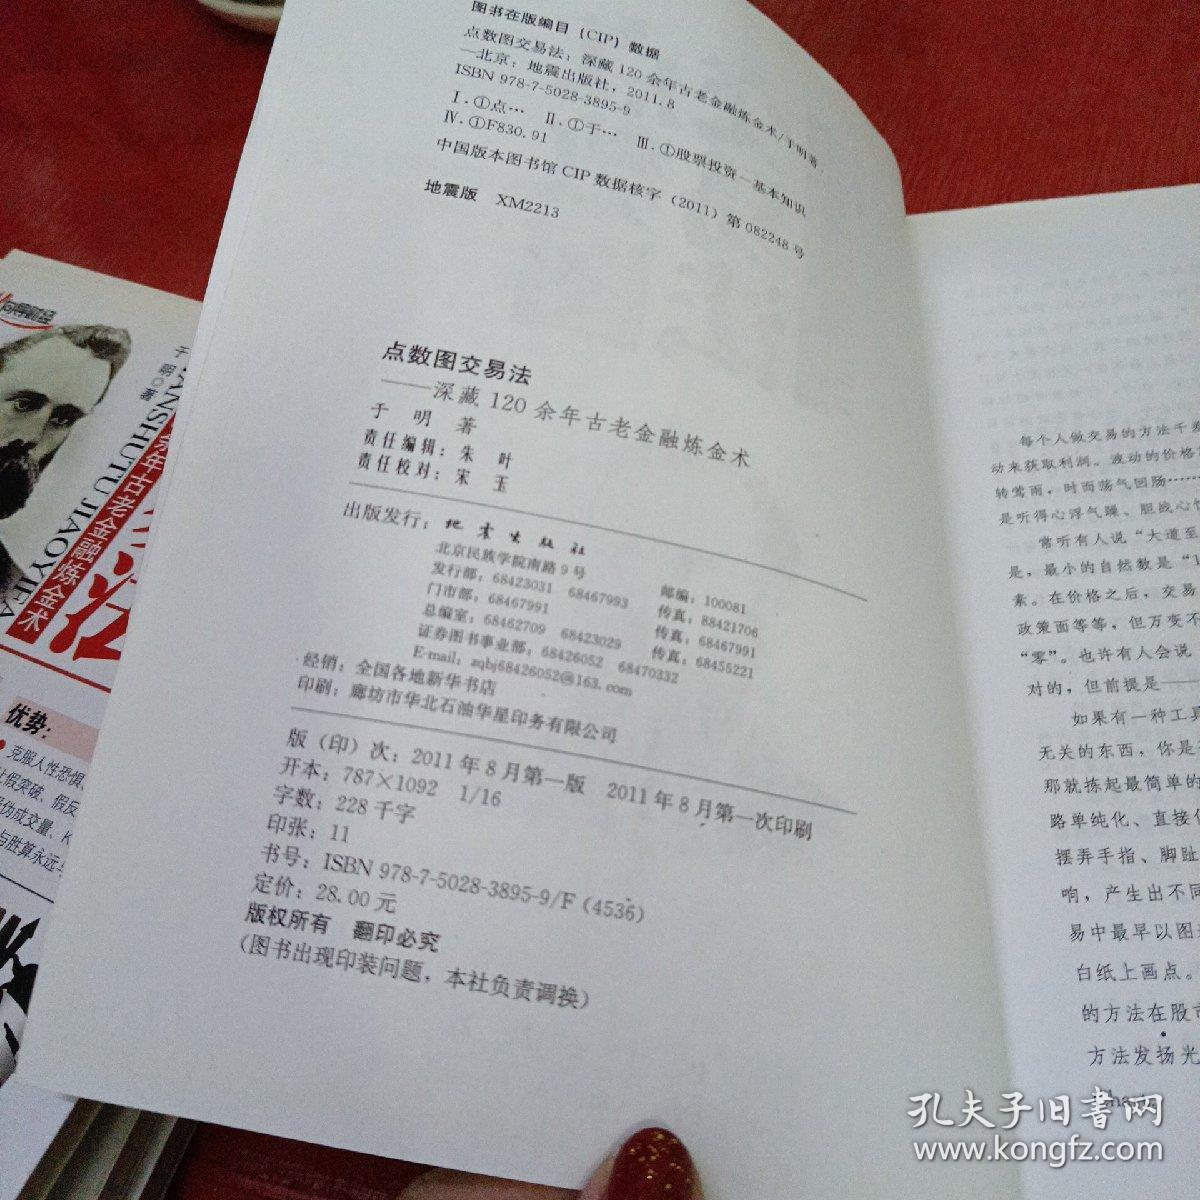 图书在版编目（CIP）数据
点数图交易法：深藏120余年古老金融炼金术/于明著.
—北京：地震出版社，2011.8
ISBN 978-7-5028-3895-9
Ⅰ.①点… Ⅱ.①于… Ⅲ.①股票投资－基本知识
Ⅳ.①F830.91
中国版本图书馆CIP数据核字（2011）第082248号
地震版 XM2213
点数图交易法
——深藏120余年古老金融炼金术
于 明 著
责任编辑：朱 叶
责任校对：宋 玉
出版发行：地震出版社
北京民族学院南路9号 邮编：100081
发行部：68423031 68467993 传真：88421706
门市部：68467991 传真：68467991
总编室：68462709 68423029 传真：68455221
证券图书事业部：68426052 68470332
E-mail：zqbj68426052@163.com
经销：全国各地新华书店
印刷：廊坊市华北石油华星印务有限公司
版（印）次：2011年8月第一版 2011年8月第一次印刷
开本：787×1092 1/16
字数：228千字
印张：11
书号：ISBN 978-7-5028-3895-9/F（4536）
定价：28.00元
版权所有 翻印必究
（图书出现印装问题，本社负责调换）
每个人做交易的方法千差
动来获取利润。波动的价格
转莺雨，时而荡气回肠……
是听得心浮气躁、胆战心
常听有人说“大道至
是，最小的自然数是“1
素。在价格之后，交易
政策面等等，但万变不
“零”。也许有人会说
对的，但前提是——
如果有一种工具
无关的东西，你是
那就拣起最简单的
路单纯化、直接
摆弄手指、脚趾
响，产生出不同
易中最早以图
白纸上画点。
的方法在股市
方法发扬光
于明◎著
余年古老金融炼金术
DIANSHUTU JIAOYIFA
法
优势：
克服人性恐惧
假突破、假反
伪成交量、K
与胜算永远
孔夫子旧书网
www.kongfz.com